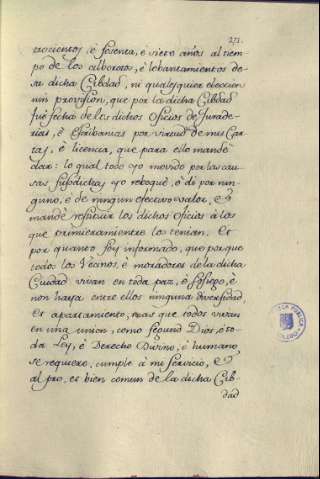 271.
trocientos, é sesenta, é siete años al tiem-
po de los alborotos, é lebantamientos de
sa dicha Cibdad, ni qualesquier eleccion
nin provision, que por la dicha Cibdad
fue fecha de los dichos Oficios de Jurade-
rias, é escribanias por virtud de mis Car-
tas, é licencia, que para ello mandé
dar: lo qual todo yo movido por las cau-
sas susodichas yo reboqué, é dí por nin-
guno, é de ningun efecto, valor, é
mandé restituir los dichos oficios á los
que primeramiente los tenian. Et
por quanto soy informado, que porque
todos los Vecinos, é moradores de la dicha
Ciudad vivan en toda paz, é sosiego, é
non haya entre ellos ninguna diversidad,
et apartamiento, mas que todos vivan
en una union, como segund Dios, é to-
da Ley, é Derecho Divino, é humano
se requiere, cumple á mi servicio, é
al pro, et bien comun de la dicha Cib-
dad